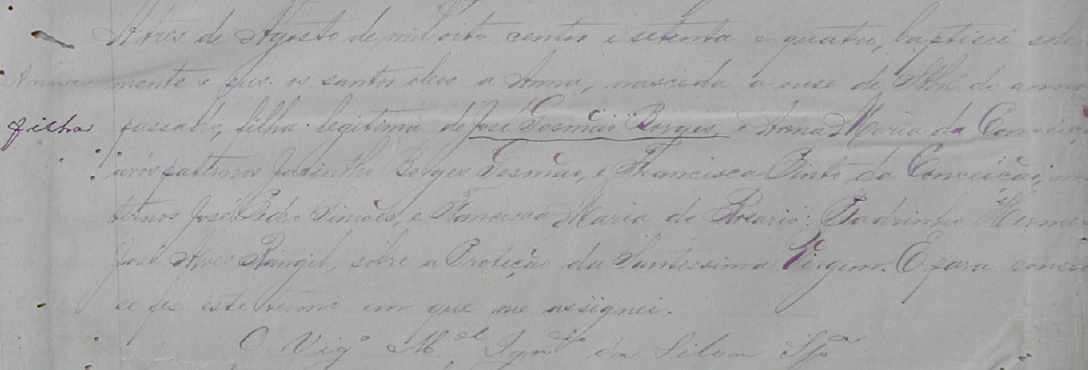 A tres de Agosto de mil oito centos e setenta e quatro, baptisei sole
Anna mente e pus os santos oleos a Anna, nascida a onse de do anno
filha passado, filha legitima de José Gosmão Borges, e Anna Maria da Conceição,
avós paternos Jacintho Borges Gosmão, e Francisca Pinto da Conceição, ma
ternos José Pedro Simões, e Francisca Maria do Rosario: Padrinho
José Alves Rangel, sobre a Proteção da Santissima Virgem. E para constar
se fes este termo em que me assignei.
O Vigº Mel Ignº da Silva Sª